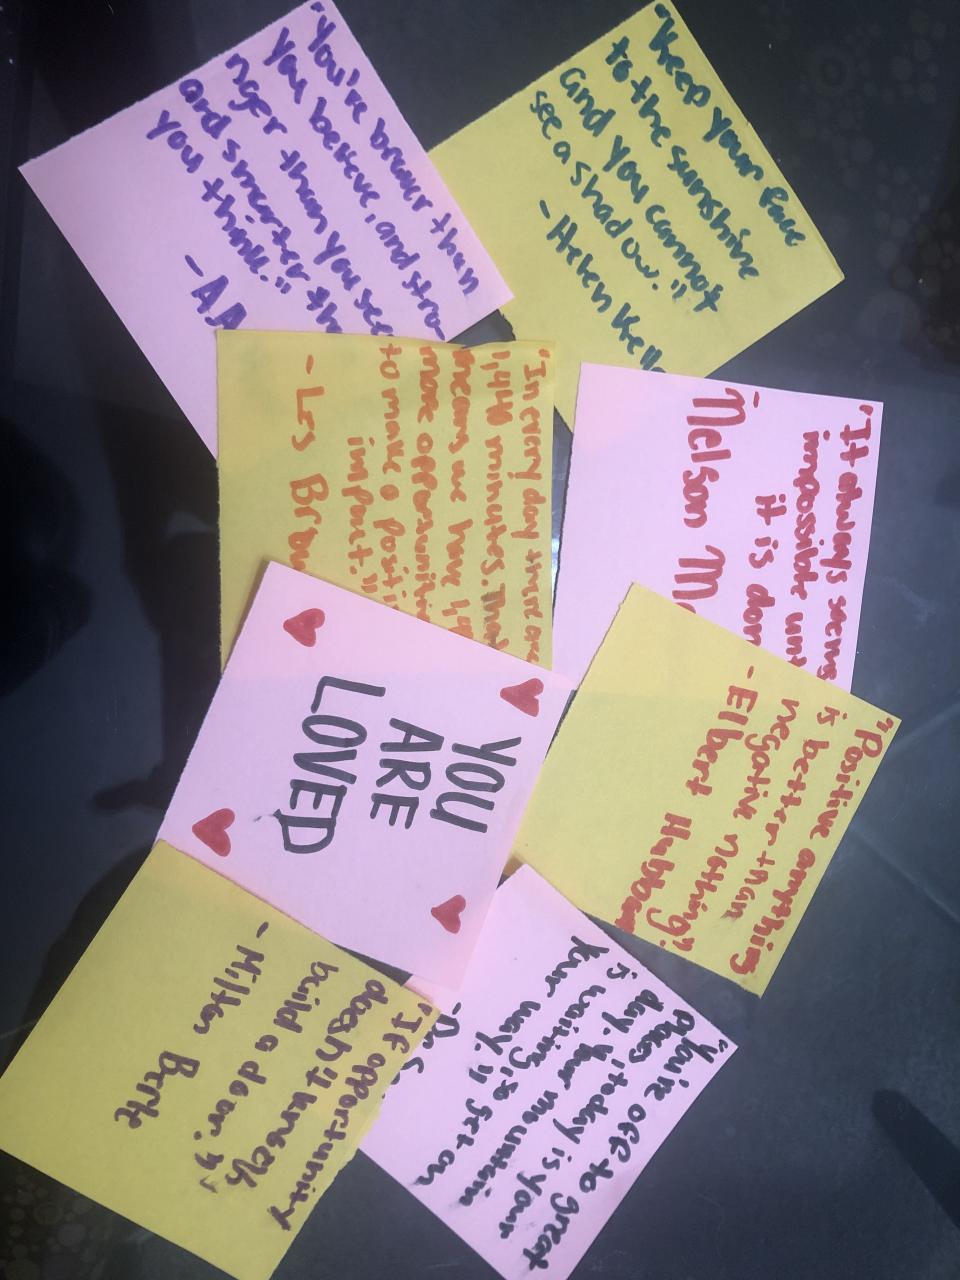 "Keep your face
to the sunshine
and you cannot
see a shadow."
-Helen Kelle
"You're braver than
you believe, and stro-
nger than you see
and smarter th
you think."
-AA
"It always seems
impossible unt
it is don
-Nelson Ma
"In every day there are
1,440 minutes. That
means we have 1,4
more opportunitie
to make a positi
impact."
-Les Brow
"Positive anything
is better than
negative nothing".
-Elbert Hubbar
YOU
ARE
LOVED
"You're off to great
places, today is your
day. Your mountain
is waiting, so get on
your way."
-Dr. S
"If opportunity
doesn't knock,
build a door."
-Milton Berle